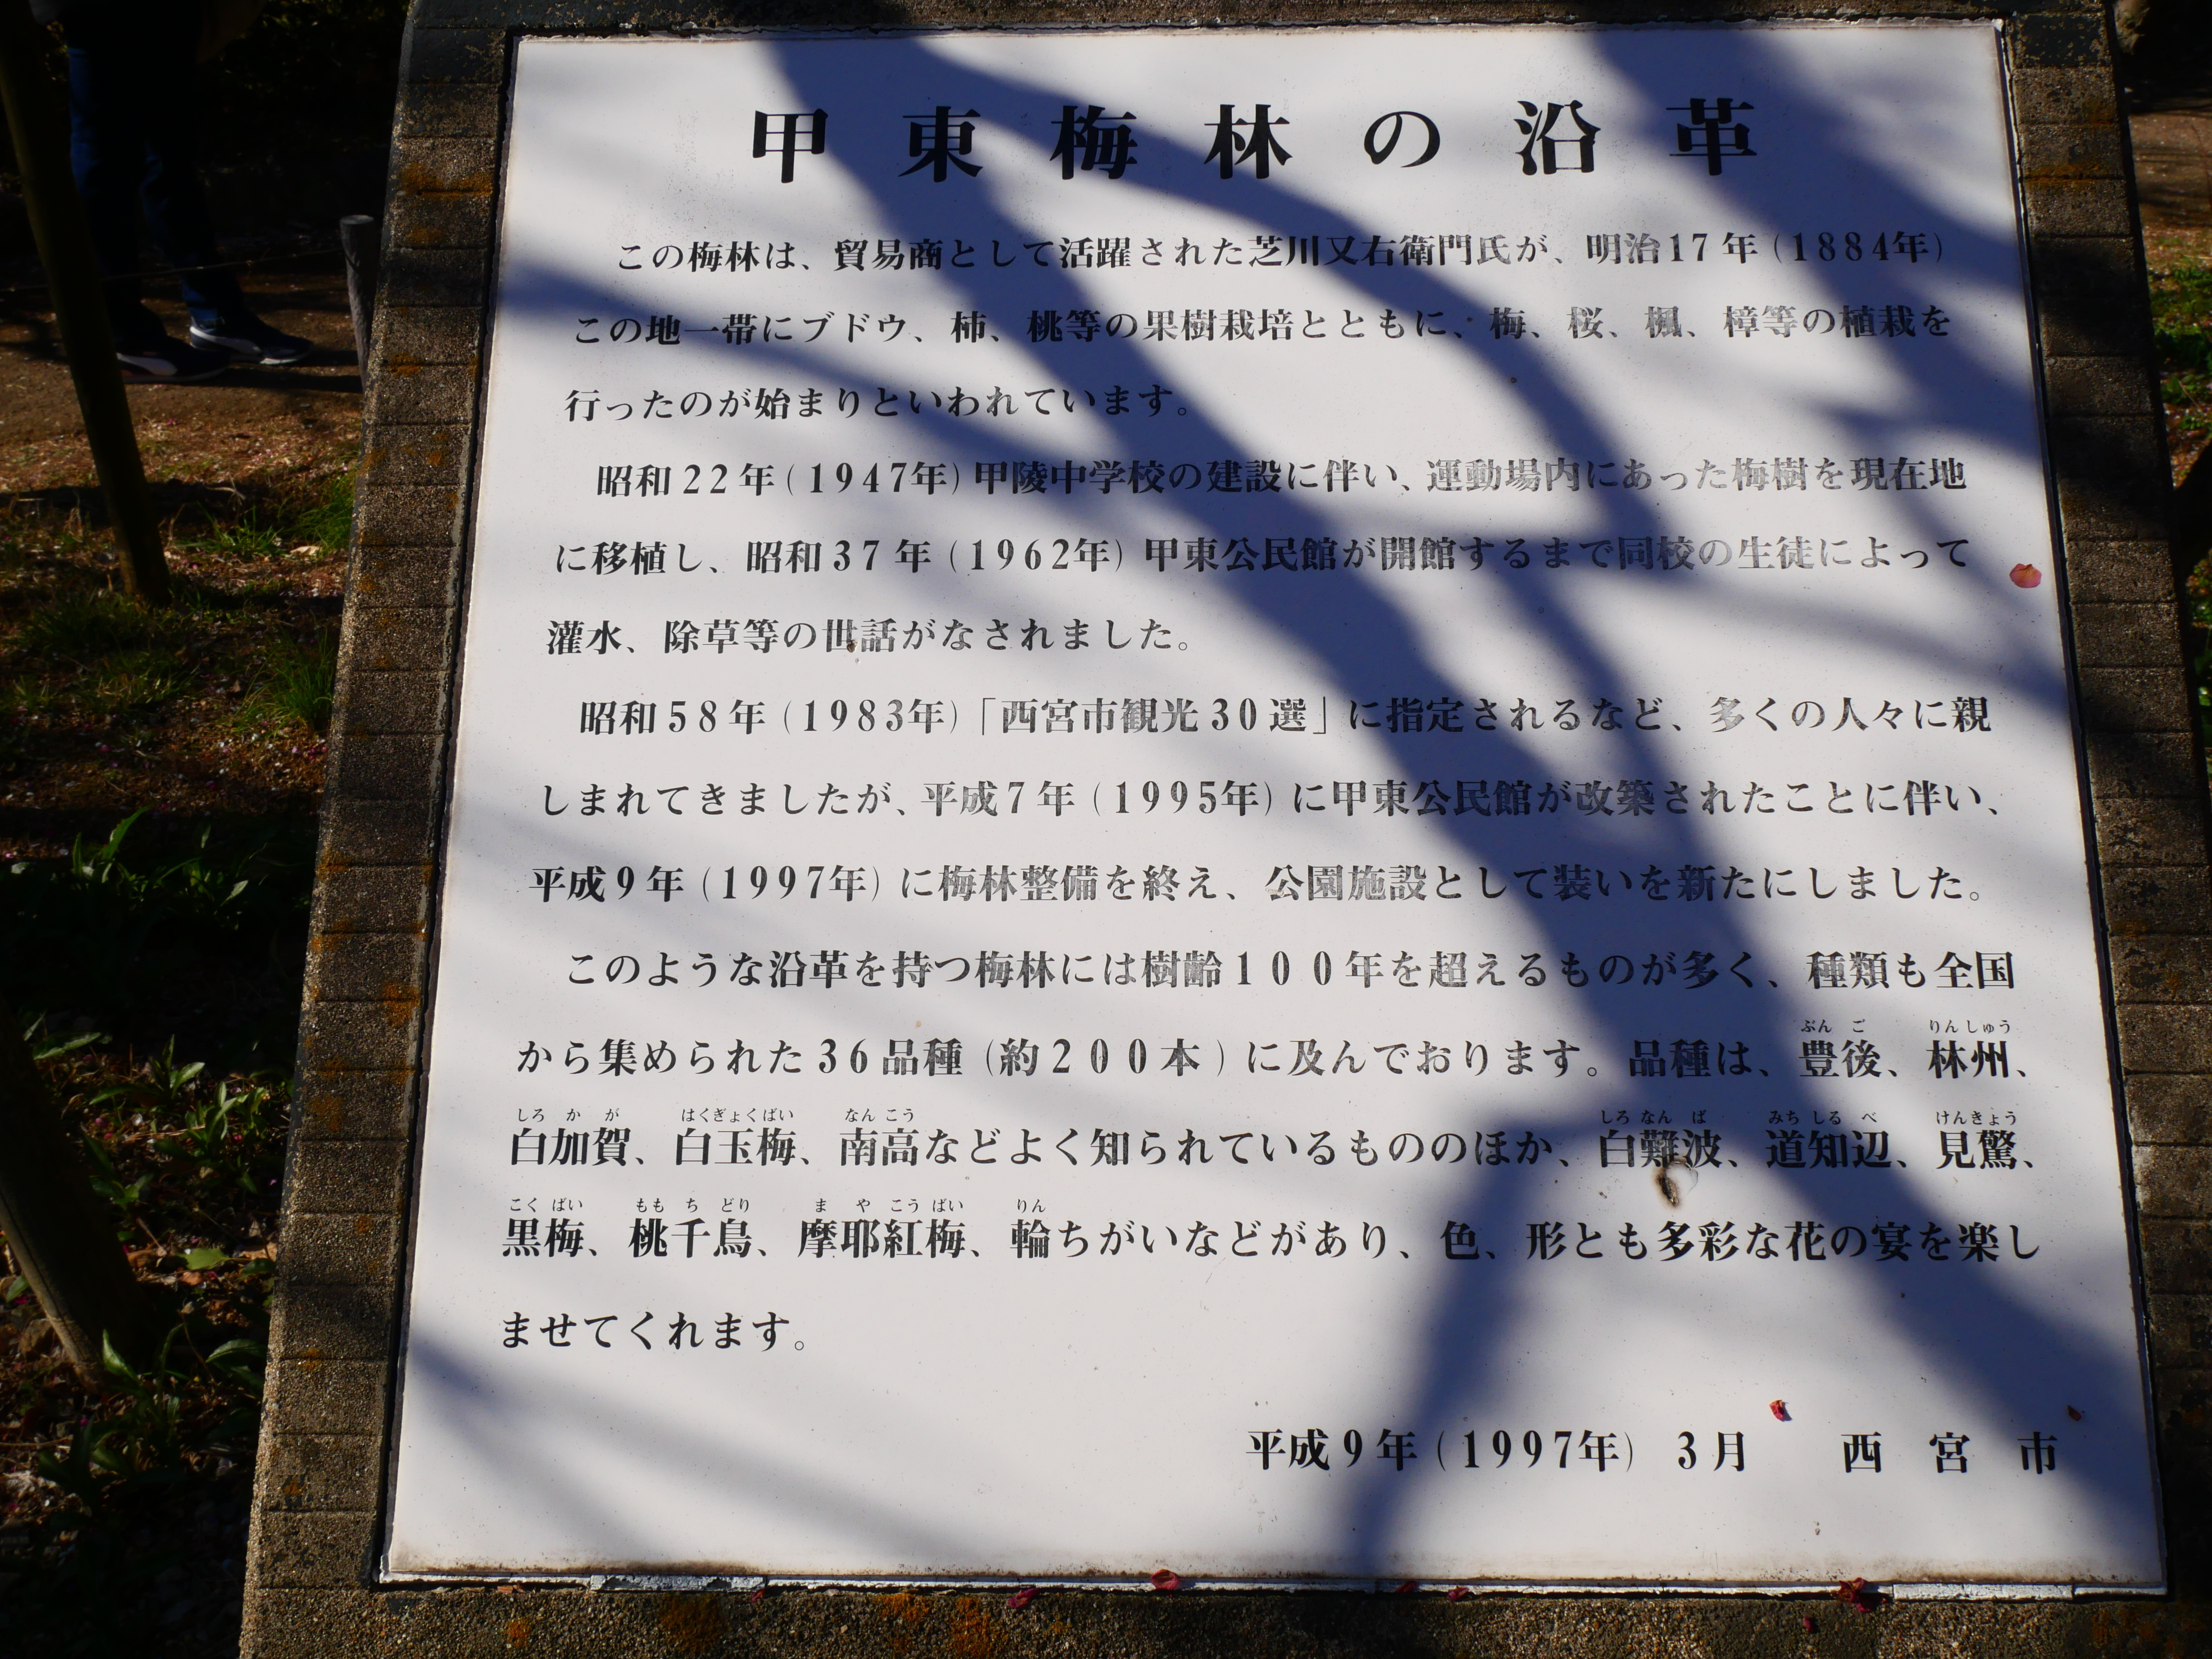 甲東梅林の沿革
この梅林は、貿易商として活躍された芝川又右衛門氏が、明治17年(1884年)
この地一帯にブドウ、柿、桃等の果樹栽培とともに、梅、桜、楓、樟等の植栽を
行ったのが始まりといわれています。
昭和22年(1947年)甲陵中学校の建設に伴い、運動場内にあった梅樹を現在地
に移植し、昭和37年(1962年)甲東公民館が開館するまで同校の生徒によって
灌水、除草等の世話がなされました。
昭和58年(1983年)「西宮市観光30選」に指定されるなど、多くの人々に親
しまれてきましたが、平成7年(1995年)に甲東公民館が改築されたことに伴い、
平成9年(1997年)に梅林整備を終え、公園施設として装いを新たにしました。
このような沿革を持つ梅林には樹齢100年を超えるものが多く、種類も全国
ぶんご りんしゅう
から集められた36品種(約200本)に及んでおります。品種は、豊後、林州、
しろかが はくぎょくばい なんこう しろなんば みちしるべ けんきょう
白加賀、白玉梅、南高などよく知られているもののほか、白難波、道知辺、見驚、
こくばい ももちどり まやこうばい りん
黒梅、桃千鳥、摩耶紅梅、輪ちがいなどがあり、色、形とも多彩な花の宴を楽し
ませてくれます。
平成9年(1997年) 3月 西宮市